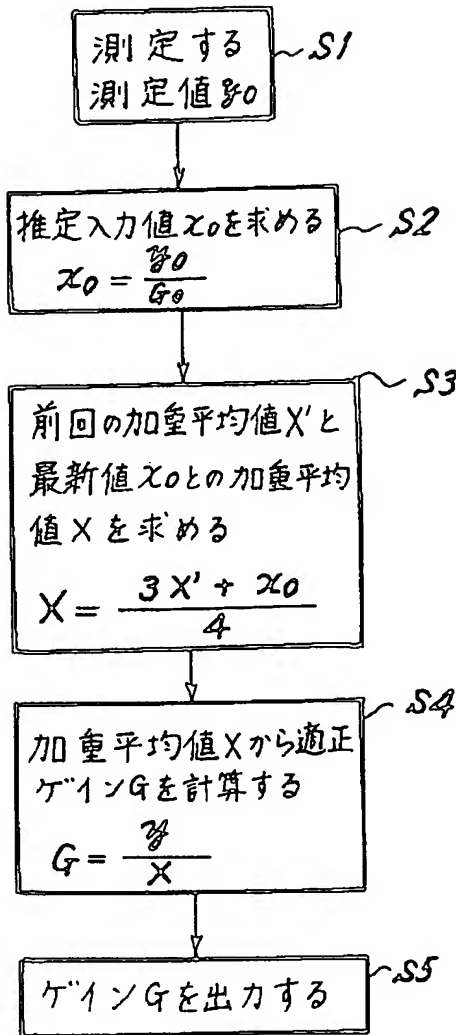 測定する
測定値y0
S1
推定入力値x0を求める
x0 = y0/G0
S2
前回の加重平均値X'と
最新値x0との加重平均
値Xを求める
X = (3X' + x0)/4
S3
加重平均値Xから適正
ゲインGを計算する
G = y/X
S4
ゲインGを出力する
S5